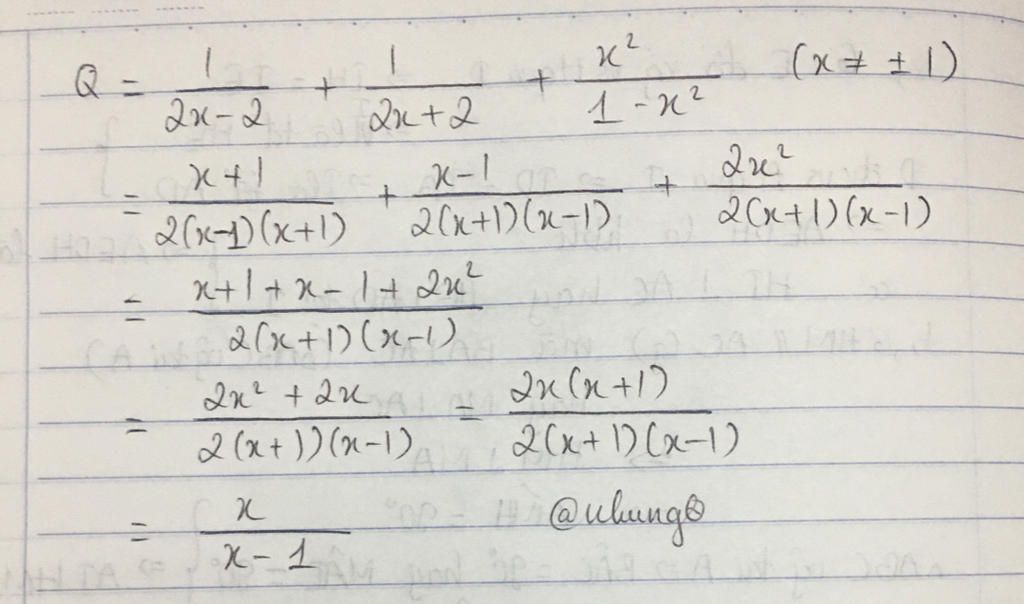 Q = 1/(2x-2) + 1/(2x+2) + x²/(1-x²) (x ≠ ±1)
= (x+1)/(2(x-1)(x+1)) + (x-1)/(2(x+1)(x-1)) + 2x²/(2(x+1)(x-1))
= (x+1+x-1+2x²)/(2(x+1)(x-1))
= (2x²+2x)/(2(x+1)(x-1)) = 2x(x+1)/(2(x+1)(x-1))
= x/(x-1)